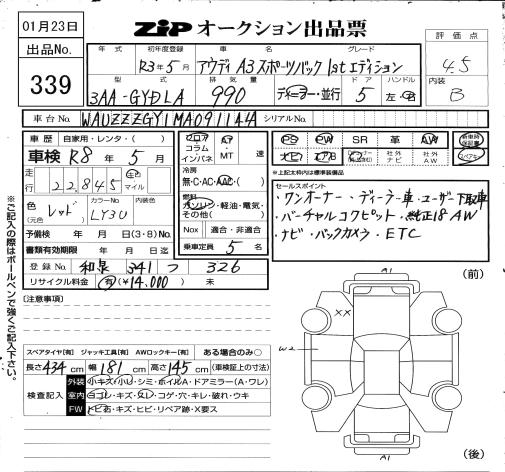 01月23日
出品No.
339
ZIP オークション出品票
評価点
4.5
内装
B
年式 初年度登録 車名 グレード
R3年5月 アウディ A3スポーツバック 1stエディション
型式 排気量 ドア ハンドル
3AA-GYDLA 990 ディーラー・並行 5 左・右
車台No. WAUZZZGY1MA091144 シリアルNo.
車歴 自家用・レンタ・( )
車検 R8年5月
走行 22,845 キロ マイル
色 (元色) レッド カラーNo. LY3U 内装色
予備検 年 月 日(3・8)No.
書類有効期限 年 月 日迄
登録No. 和泉 341 つ 326
リサイクル料金 有(¥14,000) 未
フロア コラム インパネ
AT・MT 速
冷房
無・C・AC・AAC・( )
燃料
ガソリン・軽油・電気・その他( )
Nox 適合・非適合
乗車定員 5 名
PS PW SR 革 AW
ナビ エアB 社外ナビ 社外AW
新車時保証書
スペアキー
※上記太枠内は標準装備品
セールスポイント
・ワンオーナー・ディーラー車・ユーザー下取車
・バーチャルコクピット・純正18AW
・ナビ・バックカメラ・ETC
[注意事項]
スペアタイヤ[有] ジャッキ工具[有] AWロックキー[有] ある場合のみ○
長さ434cm 幅181cm 高さ145cm (車検証上の寸法)
検査記入
外装 小キズ・小U・シミ・ホイルA・ドアミラー(A・ワレ)
室内 ヨゴレ・キズ・スレ・コゲ・穴・キレ・破れ・ウキ
FW トビ石・キズ・ヒビ・リペア跡・X要ス
※ご記入の際はボールペンで強くご記入下さい。
(前)
A1
XX
W2
A1
(後)